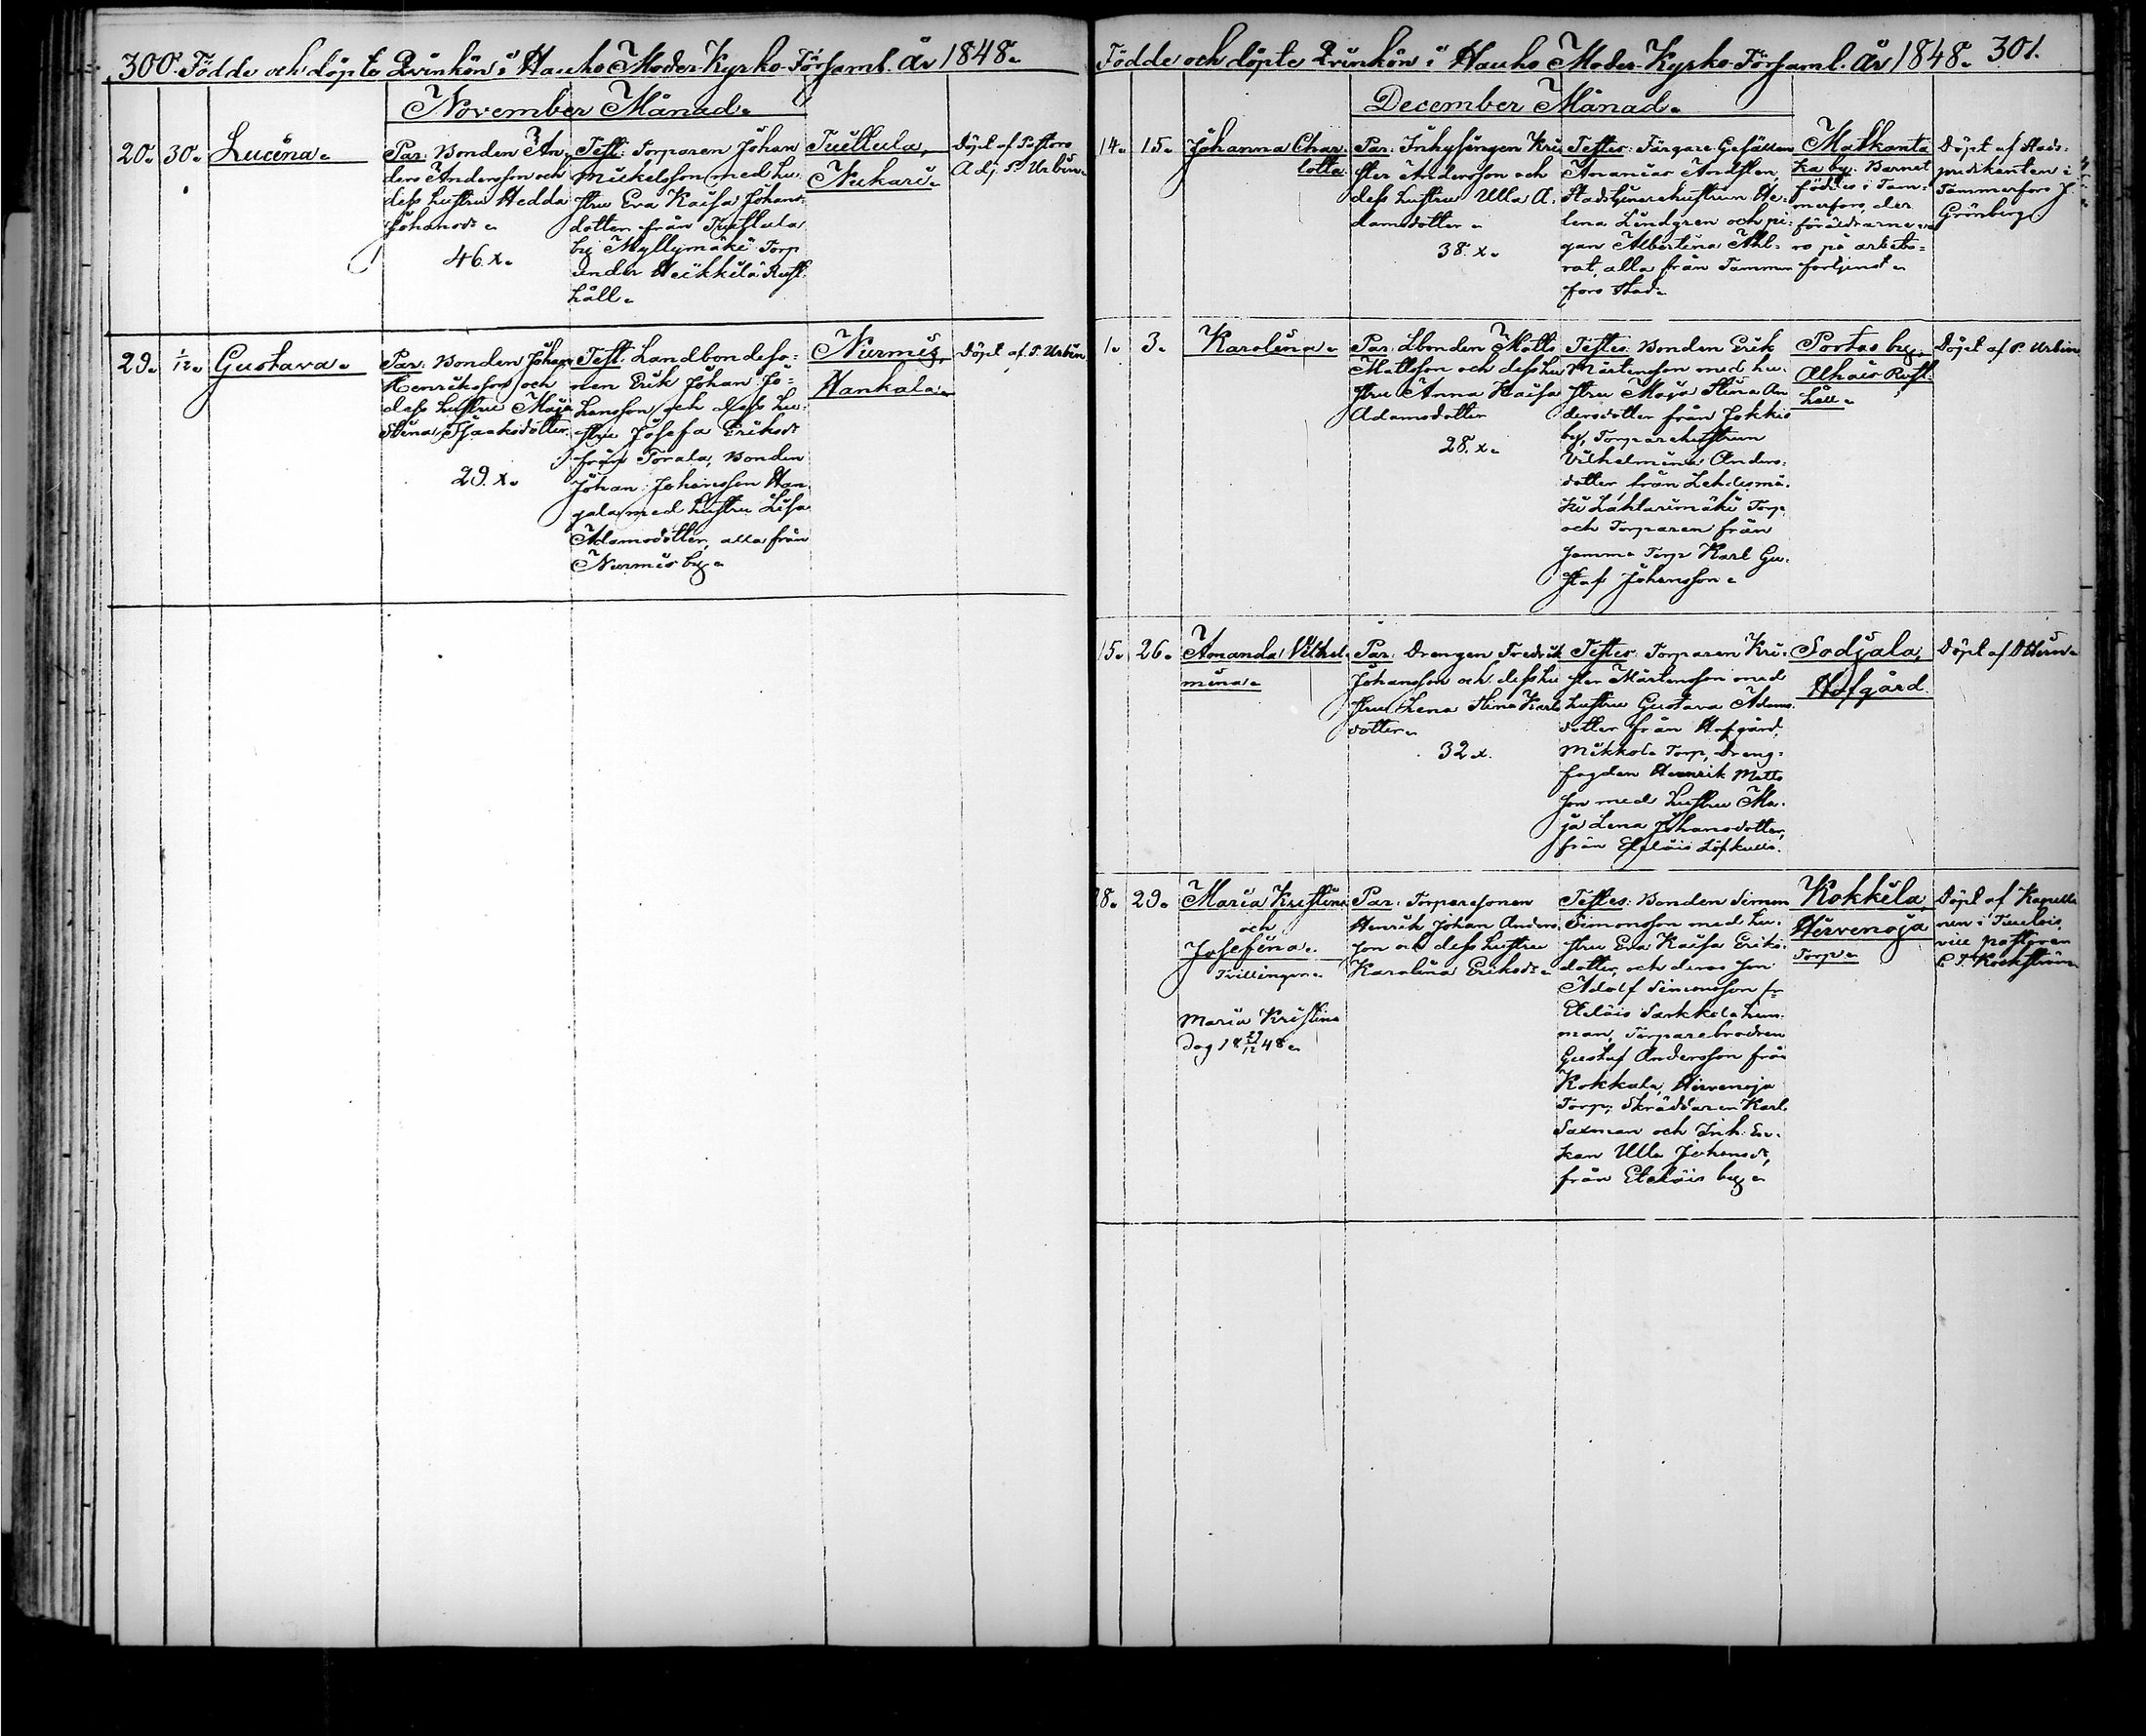 300. Födde och döpte Qvinkön i Hauho Moder Kyrko-Församl. År 1848.
November Månad.
20. 30. Lucina.
Par: Bonden An-
ders Andersson och
dess hustru Hedda
Johansdr
46. x.
Test: Torparen Johan
Mickelsson med hu-
stru Eva Kaisa Johans-
dotter från Tuittula
by Myllymäki Torp
under Heikkilä Rust-
håll.
Nukari.
Döpt af Pastors
Adj. P. Urbin.
29. 1/12. Gustava.
Par: Bonden Johan
Henriksson och
dess hustru Maja
Stina Isaaksdotter
29. x.
Test: Landbondeso-
nen Erik Johan Jo-
hansson och dess hu-
stru Josefa Eriksdr
från Torala, Bonden
Johan Johansson Han-
gala med hustru Lisa
Adamsdotter, alla från
Nurmis by.
Nurmis,
Hankala.
Döpt af P. Urbin
Födde och döpte Qvinkön i Hauho Moder-Kyrko-Församl. År 1848. 301.
December Månad.
14. 15. Johanna Char-
lotta.
Par: Inhysingen Kri-
ster Andersson och
dess hustru Ulla A-
damsdotter.
38. x.
Testes: Färgare Gesällen
Ananias Andsten,
Stadstjenarehustrun He-
lena Lindgren och pi-
gan Albertina Ahl-
rot, alla från Tammer-
fors stad.
Matkanta-
ka by. Barnet
föddes i Tam-
merfors, der
föräldrarne va-
ro på arbets-
förtjenst.
Döpt af Stads-
predikanten i
Tammerfors J.
Grönberg
1. 3. Karolina.
Par: Lbonden Matts
Mattsson och dess hu-
stru Anna Kaisa
Adamsdotter
28. x.
Testes: Bonden Erik
Mårtensson med hu-
stru Maja Stina An-
dersdotter från Jokkis
by, Torparehustrun
Vilhelmina Anders-
dotter från Lehdesmä-
ki Lahtarimäki Torp
och Torparen från
samma Torp Karl Gu-
staf Johansson.
Portas by,
Alhais Rust-
håll.
Döpt af P. Urbin
15. 26. Amanda Vilhel-
mina.
Par: Drengen Fredrik
Johansson och dess hu-
stru Lena Stina Karls-
dotter.
32 x.
Testes: Torparen Kri-
ster Mårtensson med
hustru Gustava Adams-
dotter från Hofgård,
Mikkola Torp, Dreng-
fogden Henrik Matts-
son med hustru Ma-
ja Lena Johansdotter,
från Eteläis Löfkulla.
Sodjala,
Hofgård.
28. 29. Maria Kristina
och
Josefina.
Tvillingar.
Maria Kristina
Dog 18 29/12 48.
Par: Torparesonen
Henrik Johan Anders-
son och dess hustru
Karolina Eriksdr.
Testes: Bonden Simon
Simonsson med hu-
stru Eva Kaisa Eriks-
dotter, och deras son
Adolf Simonsson fr.
Eteläis Sarkkola hem-
man, Torparebrodren
Gustaf Andersson från
Kokkala, Hirvenoja
Torp, Skräddaren Karl
Saxman och Inh. En-
kan Ulla Johansdr,
från Eteläis by.
Kokkila,
Hirvenoja
Torp.
Döpt af Kapella-
nen i Tuulois,
vice pastoren